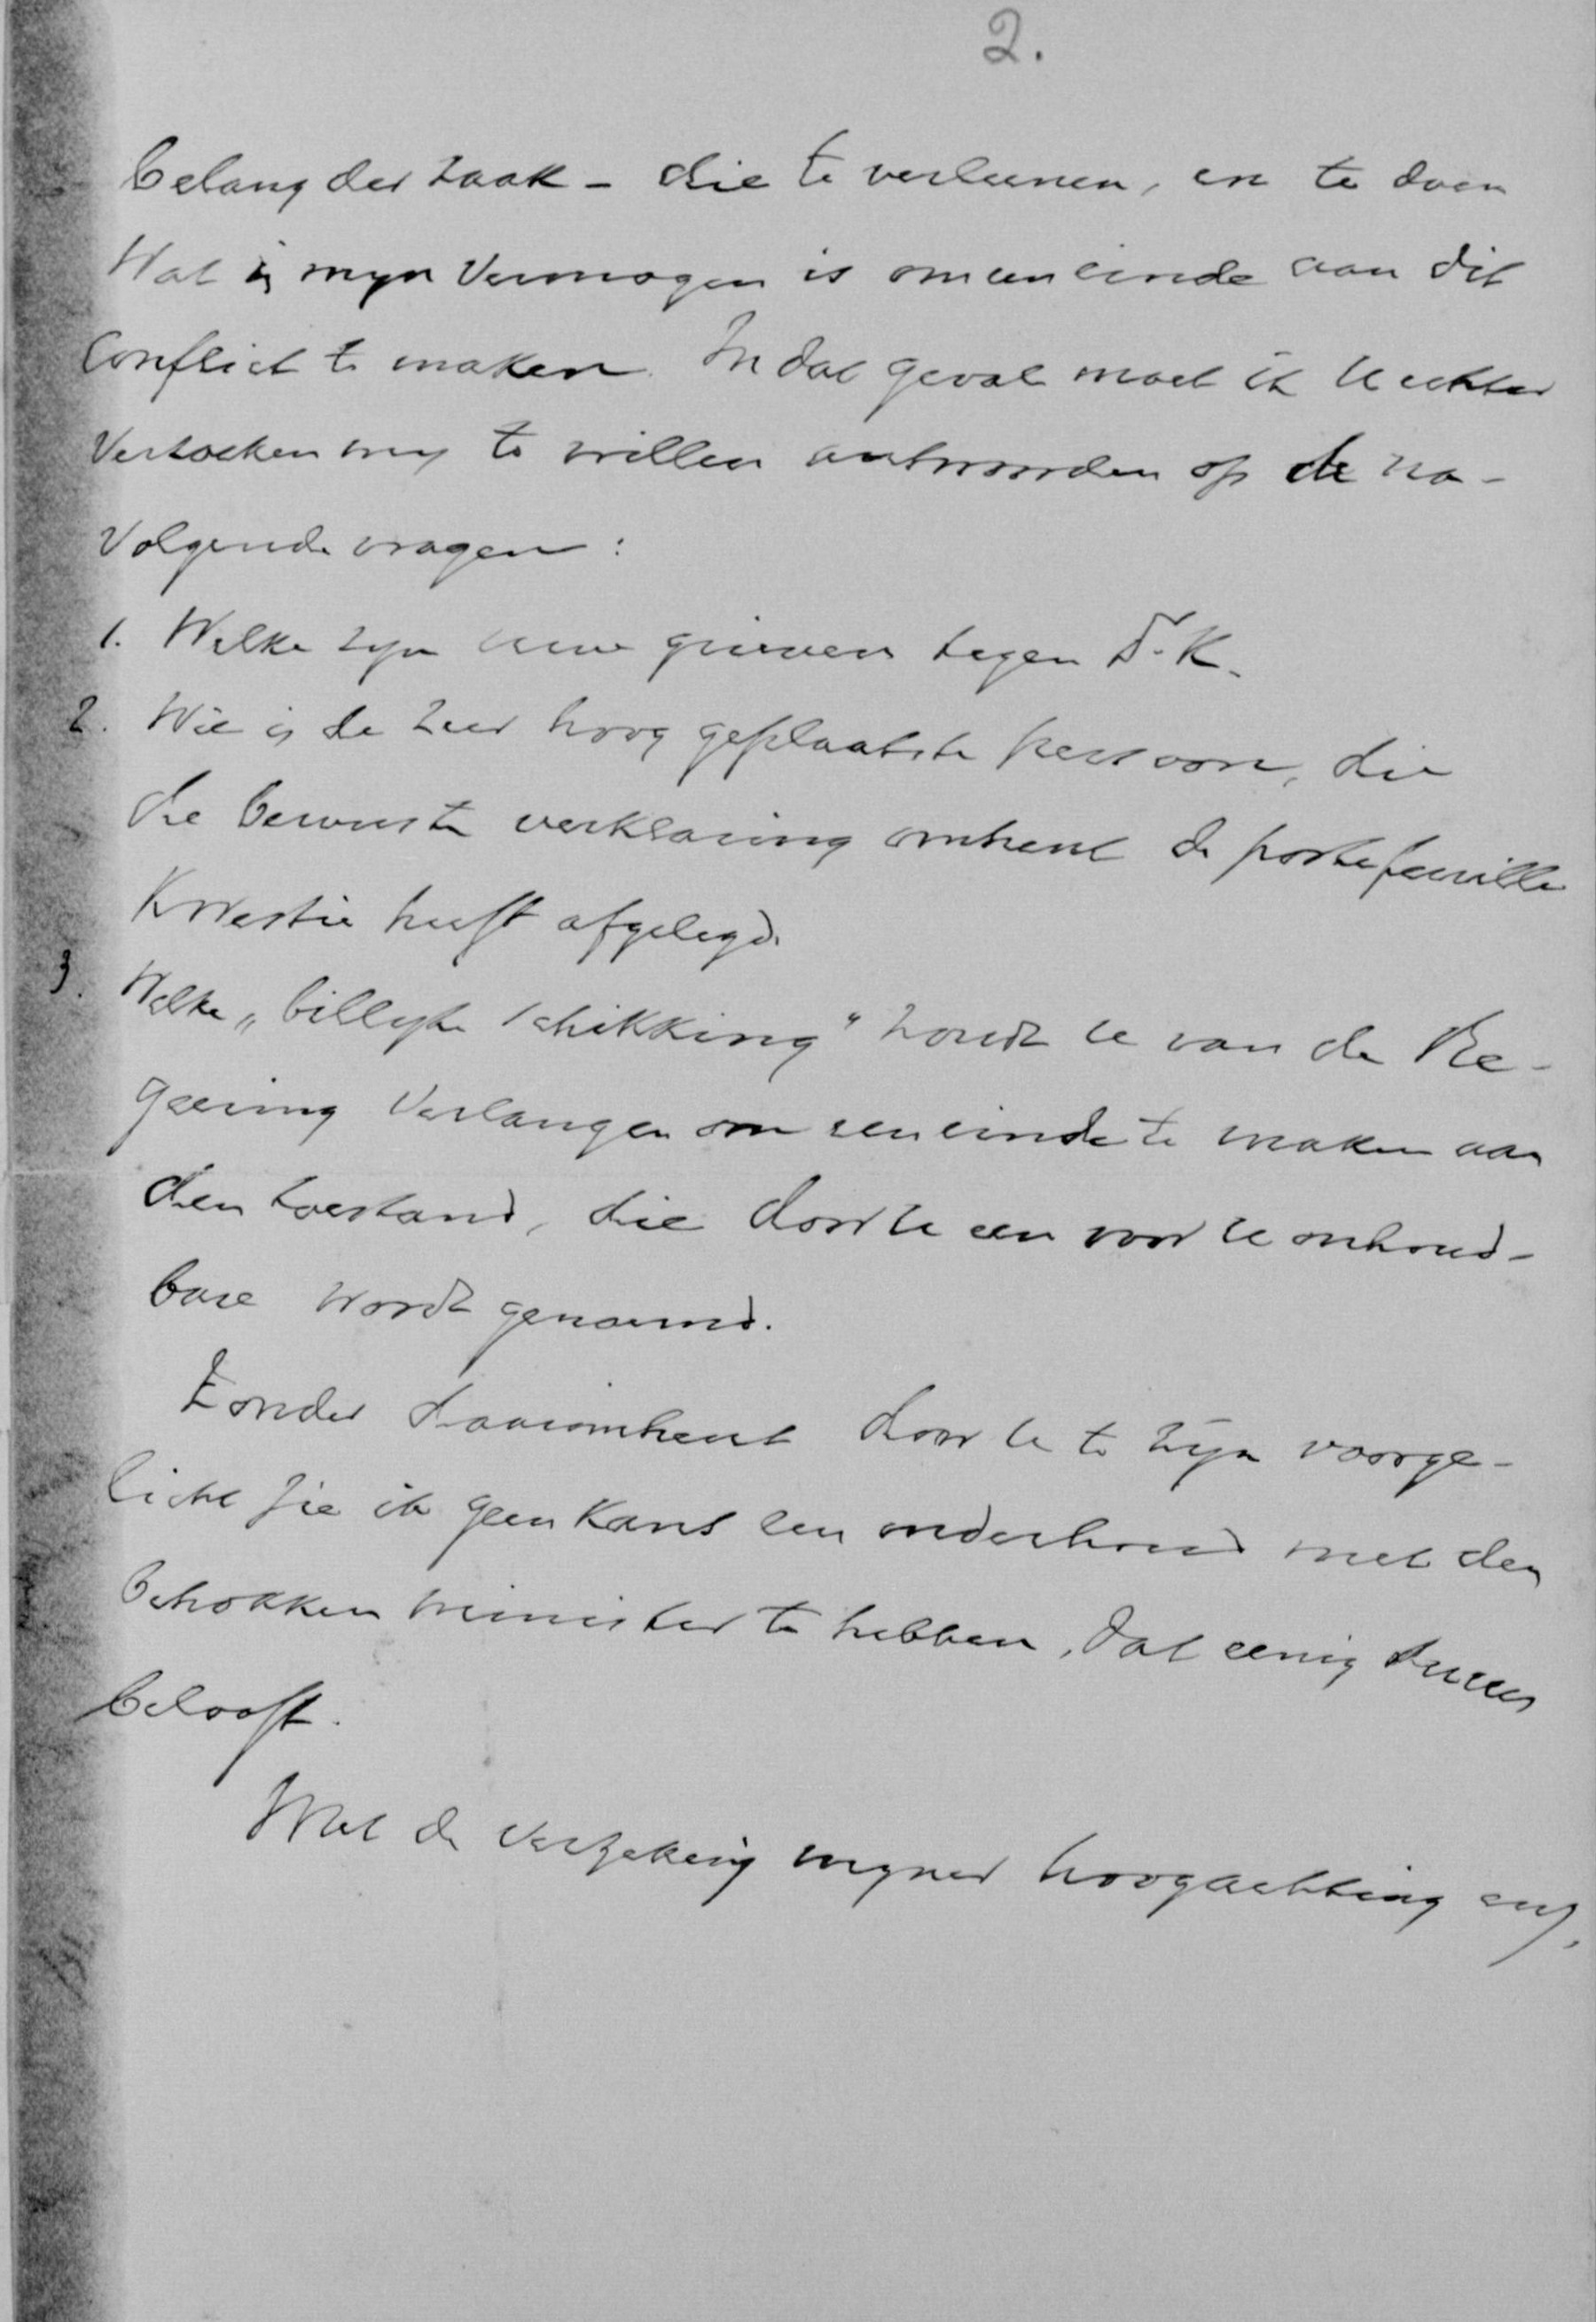 2.
belang der zaak - die te verleenen, en te doen
Wat in myn Vermogen is om een einde aan dit
Conflict te maken. In dat geval moet ik U echter
Verzoeken my te willen antwoorden op de na-
Volgende vragen :
1. Welke zyn uwe grieven tegen D. K.
2. Wie is de zeer hoog geplaatste persoon, die
die bewuste verklaring omtrent de portefeuille
Kwestie heeft afgelegd.
3. Welke „billyke schikking" zoudt U van de Re-
geering Verlangen om een einde te maken aan
den toestand, die door U een voor U onhoud-
bare wordt genoemd.
Zonder daaromtrent door U te zyn voorge-
licht zie ik geen Kans een onderhoud met den
betrokken minister te hebben, dat eenig succes
belooft.
Met de Verzekering myner hoogachting enz.